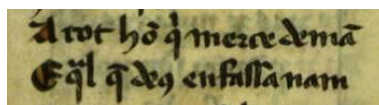 A tot hō q̄ merce demā
E q̄l q̄ deꝰ enfassa nam